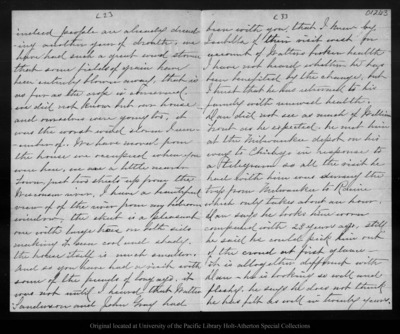 (2)
indeed people are already dread-
ing another year of drouth, we
have had such a great wind storm
that some fields of grain have
been entirely blown away, that is
as far as the crop is concerned.
we did not know but our house
and ourselves were going too, it
was the worst wind storm I rem-
ember of. We have moved from
the house we occupied when you
were here, we are a little nearer
Town just two streets up from the
river, I have a beautiful
view of the river from my bedroom
window, the street is a pleasant
one with large trees on both sides
making it seem cool and shady.
the house itself is much smaller.
And so you have had a visit with
some of the people of long ago. it
was not until I heard that Walter
Sanderson and John Gray had
(3)
01243
been with you, that I knew by
their visit was on
account of Walters broken health
I have not heard whether he has
been benefited by the change, but
I trust that he has returned to his
family with renewed health.
Dan did not see as much of William
Trout as he expected. he met him
at the Milwaukee depot, on his
way to Chicago in response to
a telegram so all the visit he
had with him was during the
trip from Milwaukee to Racine
which only takes about an hour.
Dan says he looks him worn
compared with 28 years ago, still
he said he could pick him out
of the crowd at first glance.
it is altogether different with
Dan - he is looking so well and
fleshy. he says he does not think
he has felt as well in twenty years.
Original located at University of the Pacific Library Holt-Atherton Special Collections